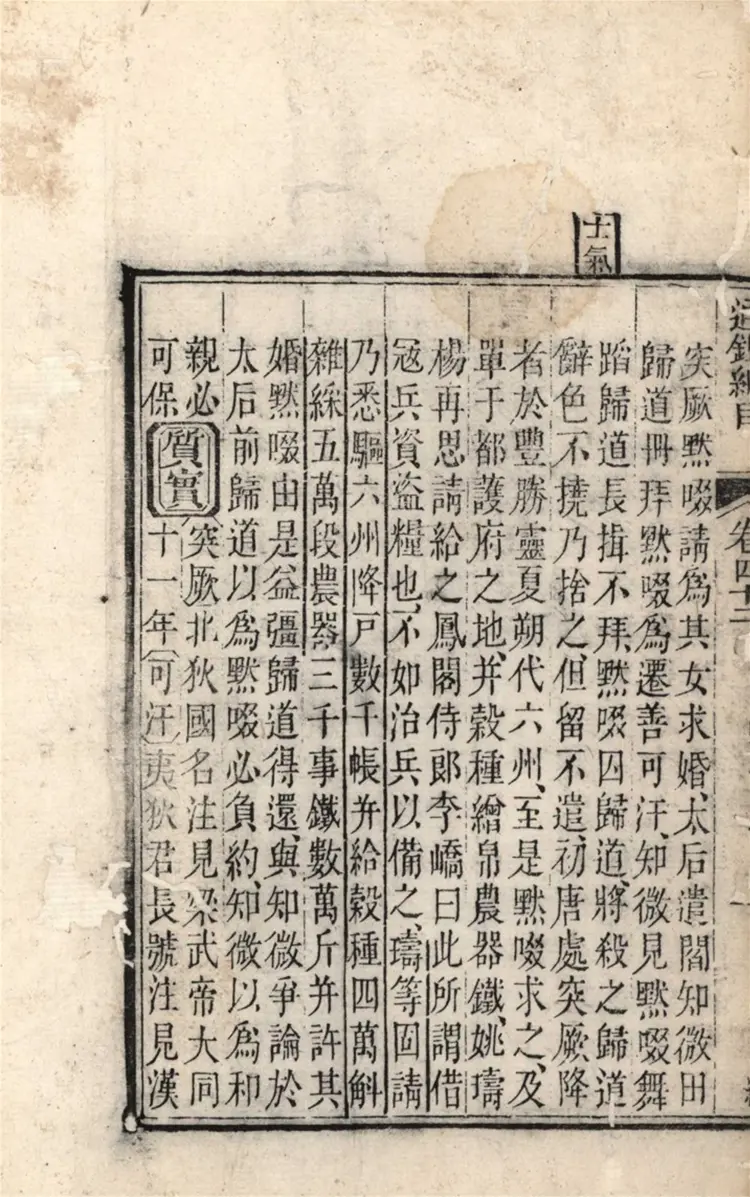 通鑑綱目 卷四十二
士氣
突厥黙啜請爲其女求婚、太后遣閻知微田
歸道冊拜黙啜爲遷善可汗、知微見黙啜舞
蹈歸道長揖不拜、黙啜囚歸道、將殺之歸道
辭色不撓乃捨之、但留不遣、初唐處突厥降
者於豐勝靈夏朔代六州、至是黙啜求之、及
單于都護府之地、并穀種繒帛農器鐵、姚璹
楊再思請給之鳳閣侍郎李嶠曰此所謂借
寇兵資盜糧也、不如治兵以備之、璹等固請
乃悉驅六州降戸數千帳并給穀種四萬斛
雜綵五萬段農器三千事鐵數萬斤并許其
婚黙啜由是益彊歸道得還、與知微爭論於
太后前歸道以爲黙啜必負約、知微以爲和
親必
可保
質實
突厥北狄國名注見梁武帝大同
十一年可汗夷狄君長號注見漢